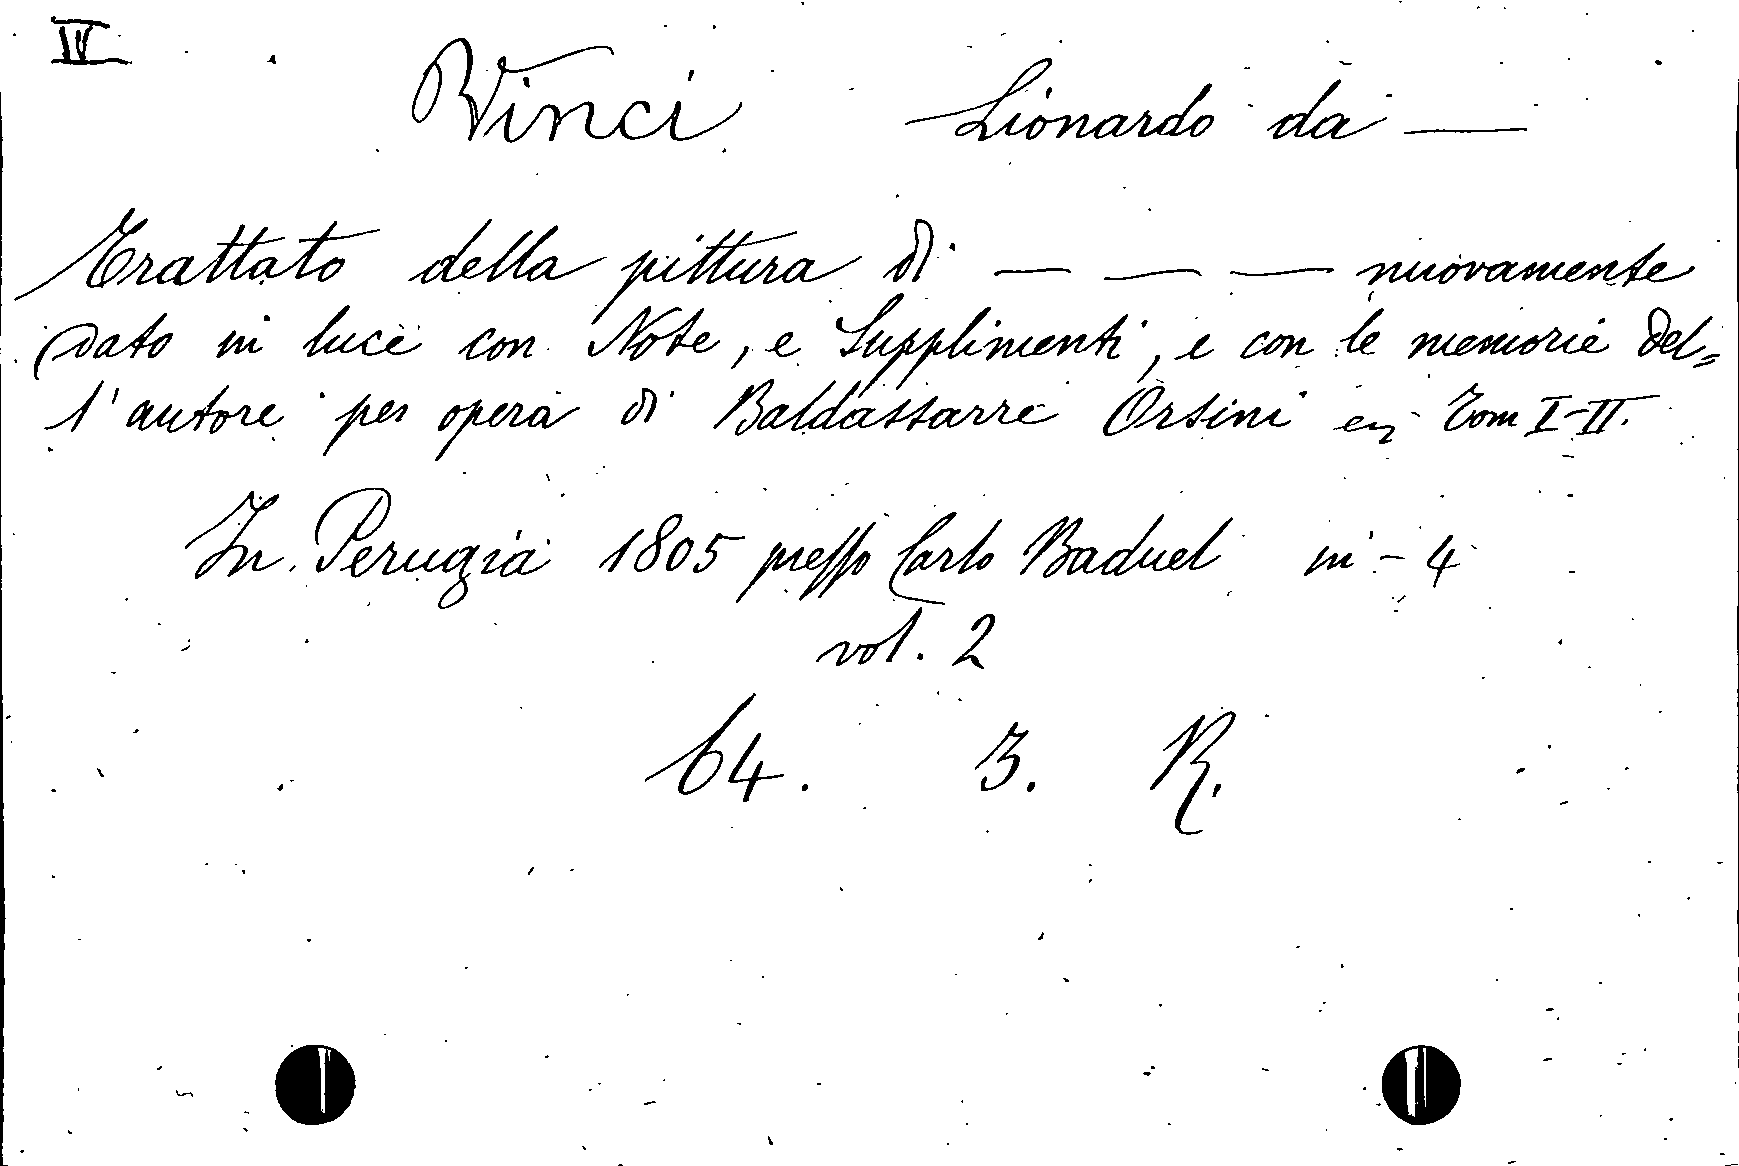 IV
Vinci Lionardo da —
Trattato della pittura di — — — nuovamente
dato in luce con Note, e Supplimenti, e con le memorie del=
l'autore per opera di Baldassarre Orsini Tom I-II.
In Perugia 1805 presso Carlo Baduel in-4
vol. 2
64. 3. R.